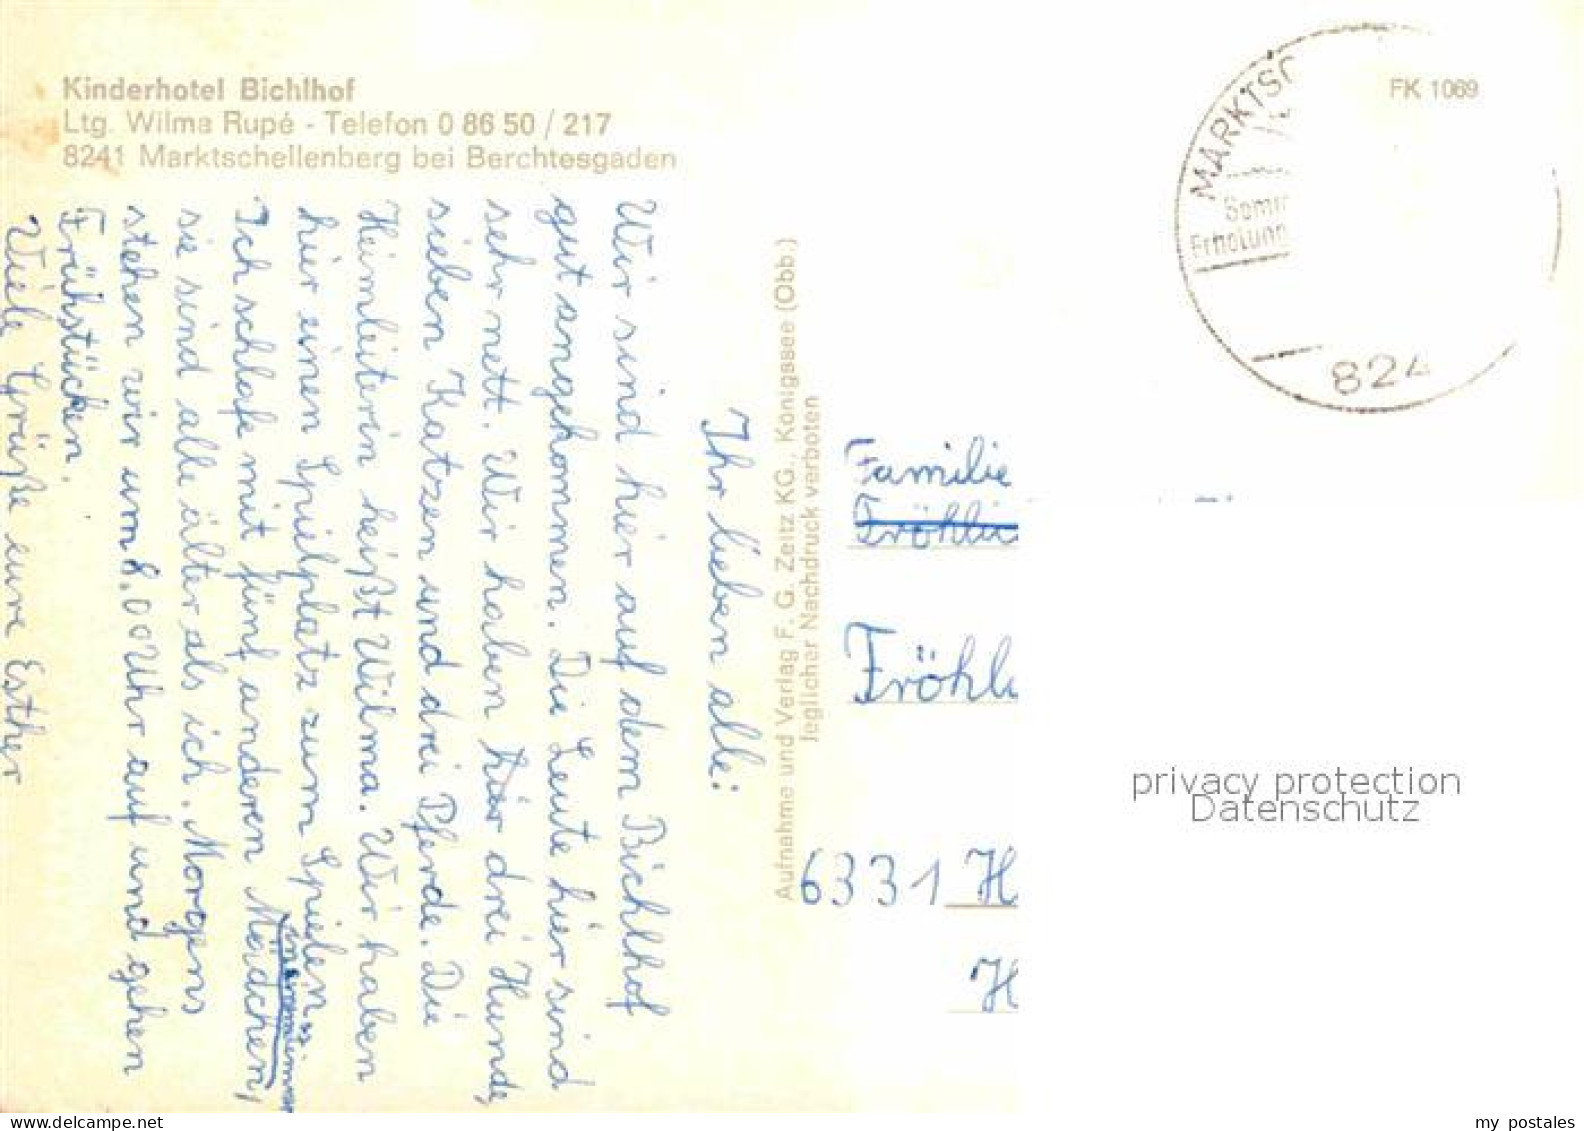 Kinderhotel Bichlhof
Ltg. Wilma Rupé - Telefon 0 86 50 / 217
8241 Marktschellenberg bei Berchtesgaden
Ihr lieben alle!
Wir sind hier auf dem Bichlhof
gut angekommen. Die Leute hier sind
sehr nett. Wir haben hier drei Hunde,
sieben Katzen und drei Pferde. Die
Heimleiterin heißt Wilma. Wir haben
hier einen Spielplatz zum Spielen.
Ich schlafe mit fünf anderem Mädchen,
sie sind alle älter als ich. Morgens
stehen wir um 8.00 Uhr auf und gehen
Frühstücken.
Viele Grüße eure Esther
Aufnahme und Verlag F. G. Zeitz KG., Königssee (Obb.)
Jeglicher Nachdruck verboten
FK 1069
MARKTSC
Somm
Erholung
824
Familie
Fröhlic
Fröhl
6331 H
H
privacy protection
Datenschutz
www.delcampe.net
my_postales